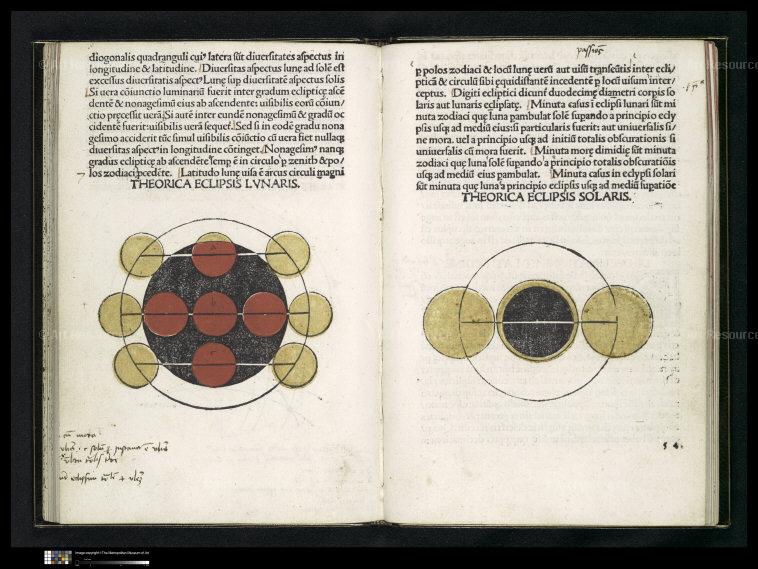 diogonalis quadranguli cuiꝰ latera sũt diuersitates aspectus in
longitudine & latitudine. Diuersitas aspectus lunę ad solẽ est
excessus diuersitatis aspectꝰ Lunę sup diuersitatẽ aspectus solis
Si uera cõiunctio luminariũ fuerit inter gradum eclipticę ascẽ
dentẽ & nonagesimũ eius ab ascendente: uisibilis eorũ cõiun/
ctio pręcessit uerã. Si autẽ inter eundẽ nonagesimũ & gradũ oc
cidentẽ fuerit: uisibilis uerã sequeť. Sed si in eodẽ gradu nona
gesimo acciderit tũc simul uisibilis cõiũctio cũ uera fiet nullaq
diuersitas aspectꝰ in longitudine cõtinget. Nonagesimꝰ nanq
gradus eclipticę ab ascẽdẽte semp ẽ in circulo p zenith & po/
los zodiaci pcedẽte. Latitudo lunę uisa ẽ arcus circuli magni
THEORICA ECLIPSIS LVNARIS.
p polos zodiaci & locũ lunę uerũ aut uisũ transeũtis inter ecli/
pticã & circulũ sibi equidistantẽ incedentẽ p locũ uisum inter/
ceptus. Digiti ecliptici dicunť duodecimę diametri corpis so
laris aut lunaris eclipsatę. Minuta casus i eclipsi lunari sũt mi
nuta zodiaci quę luna pambulat solẽ supando a principio ecly
psis usq ad mediũ eius: si particularis fuerit: aut uniuersalis si/
ne mora. uel a principio usq ad initiũ totalis obscurationis si
uniuersalis cũ mora fuerit. Minuta morę dimidię sũt minuta
zodiaci quę luna solẽ supando a principio totalis obscuratiõis
usq ad mediũ eius pambulat. Minuta casus in eclypsi solari
sũt minuta quę luna a principio eclipsis usq ad mediũ supatiõe
THEORICA ECLIPSIS SOLARIS.